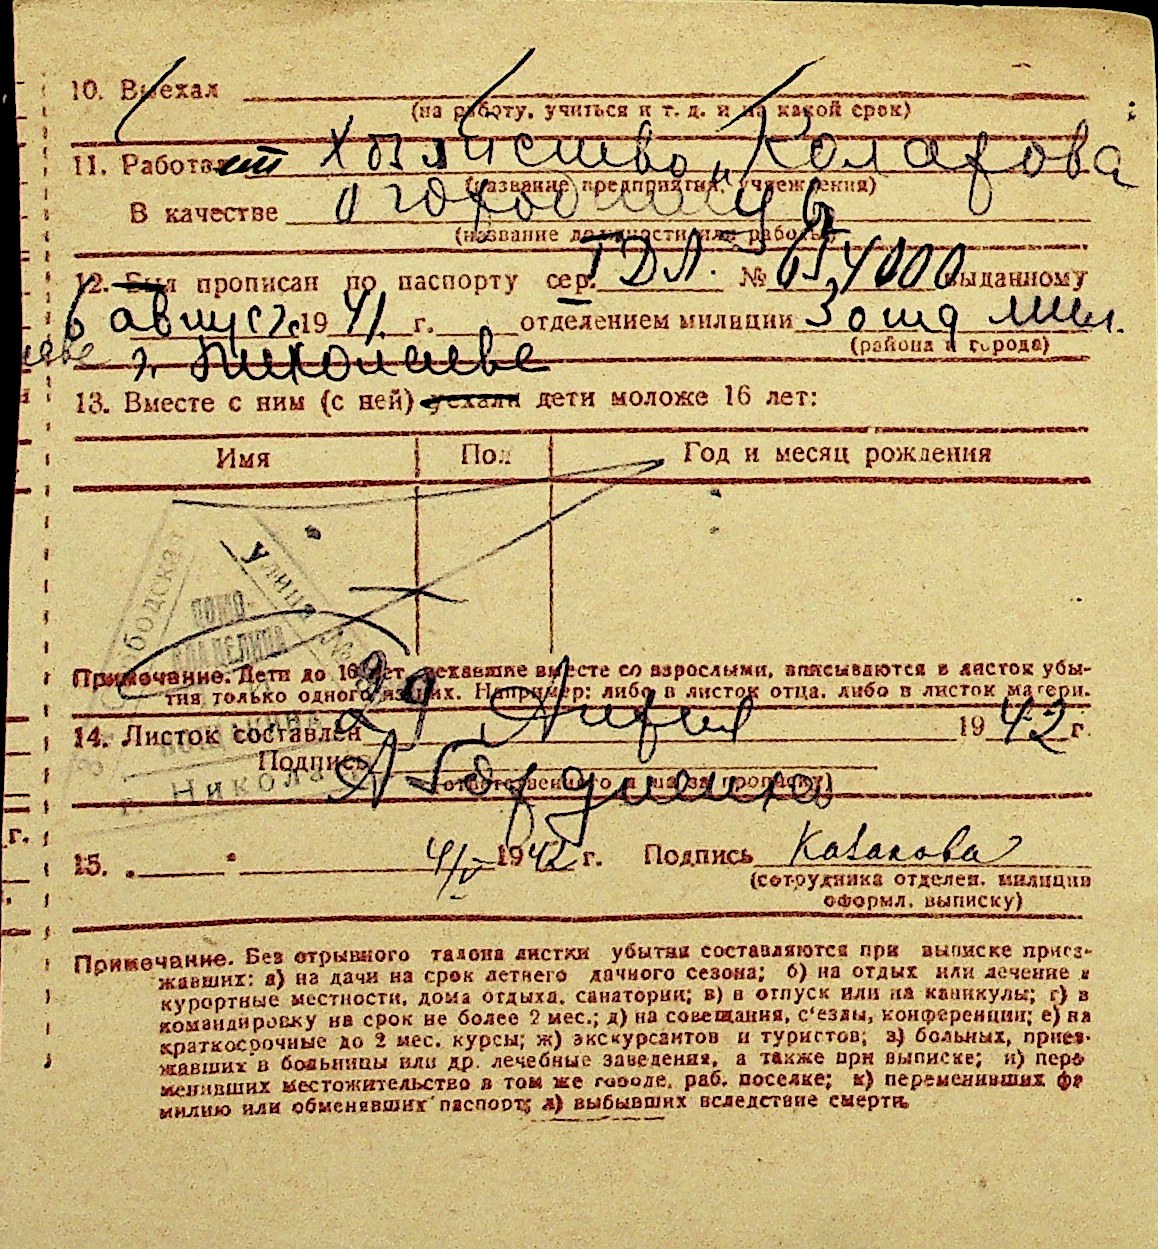 10. Выехал
(на работу, учиться и т. д. и на какой срок)
11. Работает Хозяйство „Коларова
(название предприятия, учреждения)
В качестве огородницы
(название должности или работы)
12. Был прописан по паспорту сер. ТДЛ. № 654000 выданному
6 август 1941 г. отделением милиции 3 отд мил.
(района и города)
г. Николаеве
13. Вместе с ним (с ней) уехали дети моложе 16 лет:
Имя Пол Год и месяц рождения
Слободская
улица №
ДОМО-
ВЛАДЕЛИЦА
г. Николаев
Примечание. Дети до 16 лет, уехавшие вместе со взрослыми, вписываются в листок убы-
тия только одного из них. Например: либо в листок отца, либо в листок матери.
14. Листок составлен 29 Апреля 1942 г.
Подпись
(ответственного лица за прописку)
15. 4/V 1942 г. Подпись Казакова
(сотрудника отделен. милиции
оформл. выписку)
Примечание. Без отрывного талона листки убытия составляются при выписке приез-
жавших: а) на дачи на срок летнего дачного сезона; б) на отдых или лечение в
курортные местности, дома отдыха, санатории; в) в отпуск или на каникулы; г) в
командировку на срок не более 2 мес.; д) на совещания, с'езды, конференции; е) на
краткосрочные до 2 мес. курсы; ж) экскурсантов и туристов; з) больных, приез-
жавших в больницы или др. лечебные заведения, а также при выписке; и) пере-
менивших местожительство в том же городе, раб. поселке; к) переменивших фа
милию или обменявших паспорт; л) выбывших вследствие смерти.